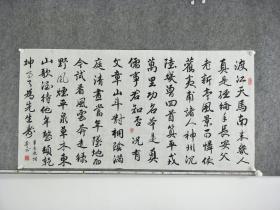 渡江天馬南來幾人
真是經綸手長安父
老新亭風景可憐依
舊夷甫諸人神州沉
陸幾曾回首算平戎
萬里功名本是真
儒事君知否況有
文章山斗對桐陰滿
庭清晝當年墮地而
今試看風雲奔走綠
野風煙平泉草木東
山歌酒待他年整頓乾
坤事了為先生壽